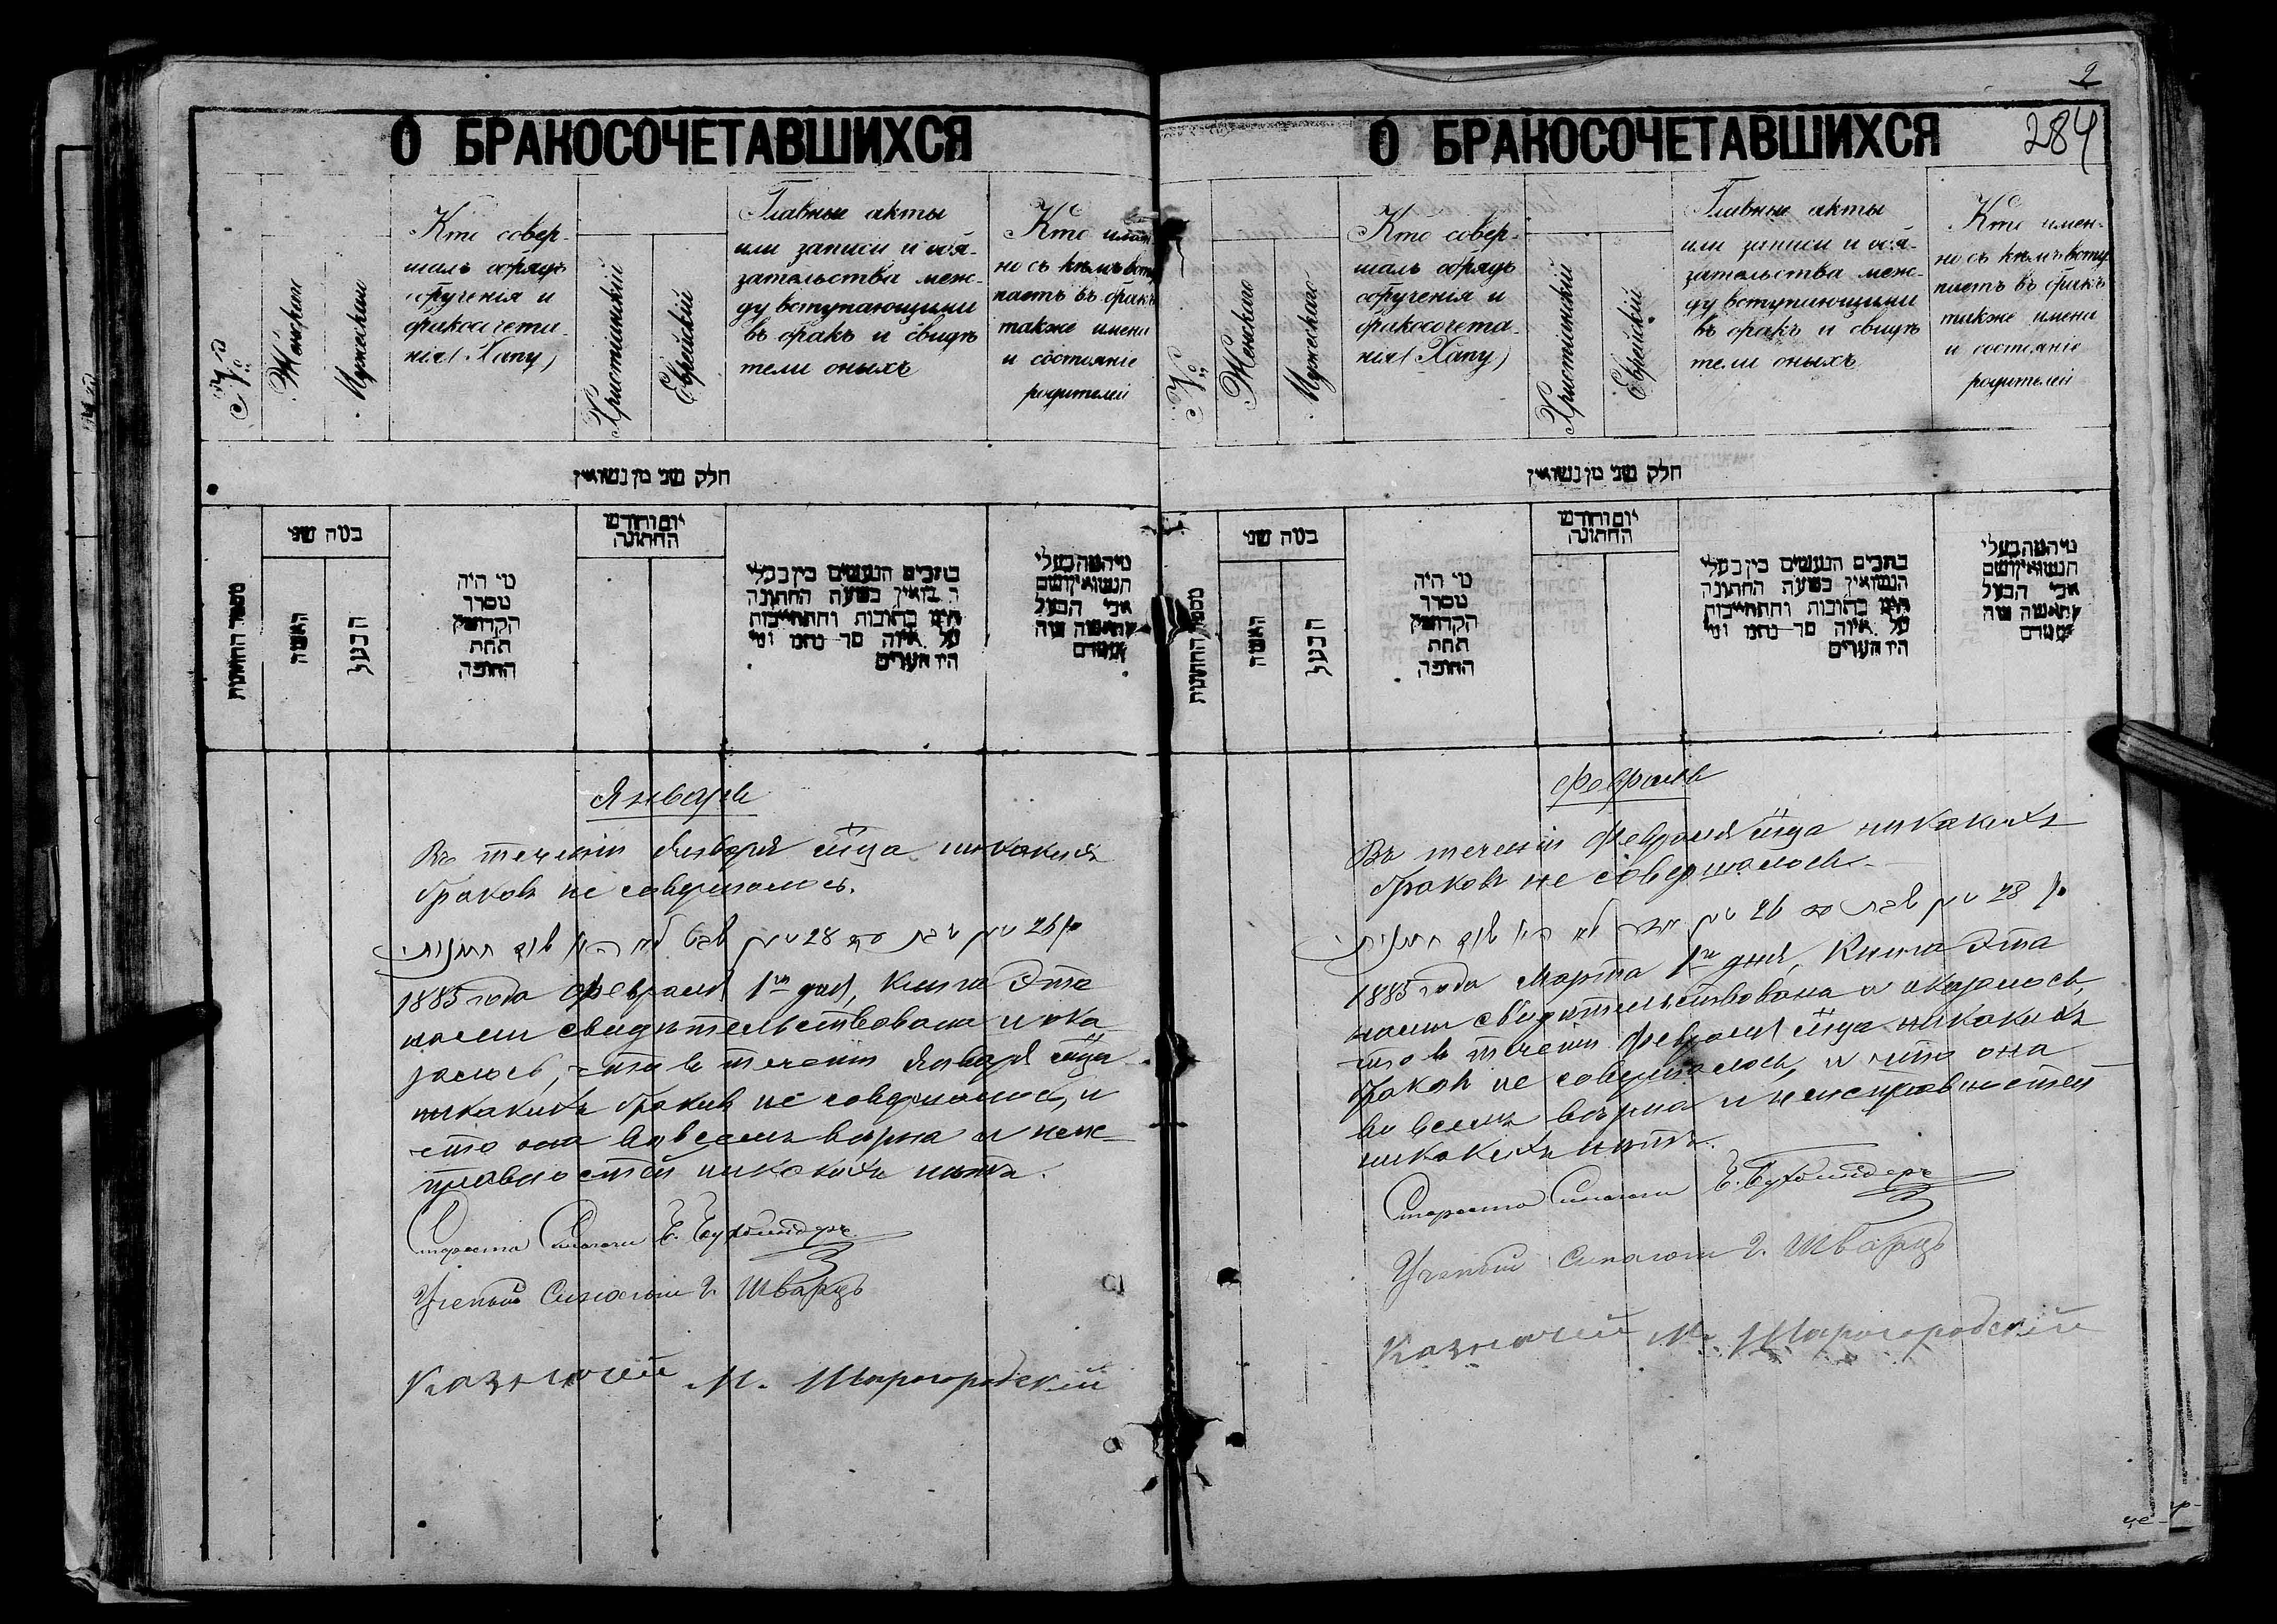 О БРАКОСОЧЕТАВШИХСЯ
№
Женскаго
Мужескаго
Кто совер-
шалъ обрядъ
обрученія и
бракосочета-
нія (Хапу)
Христіанскій
Еврейскій
Главные акты
или записи и обя-
зательства меж-
ду вступающими
въ бракъ и свидѣ
тели оныхъ
Кто имен
но съ кѣмъ всту
паетъ въ бракъ
также имена
и состояніе
родителей
חלק שני מן נשואין
מספר החתונות
במה שני
האשה
הבעל
מי היה
מסדר
הקדושין
תחת
החופה
יום וחודש
החתונה
כתבים הנעשים בין בעלי
בשעת החתונה
כתובות והתחייבות
על איזה סך נחנו ומי
היו העדים
מי המה בעלי
הנשואין ושם
אבי הבעל
והאשה
Январь
Въ теченіи Января м̃ца никакихъ
браковъ не совершалось.
26 28
1885 года Февраля 1го дня, Книга Эта
нами свидѣтельствована и ока
залось, что въ теченіи Января м̃ца
никакихъ браковъ не совершалось, и
что она во всемъ вѣрна и неис-
правностей никакихъ нѣтъ.
Староста Синагоги Б. Бухбиндеръ
Ученый Синагоги Г. Шварцъ
Казначей М. Шаргородскій
2
284
О БРАКОСОЧЕТАВШИХСЯ
№
Женскаго
Мужескаго
Кто совер-
шалъ обрядъ
обрученія и
бракосочета-
нія (Хапу)
Христіанскій
Еврейскій
Главные акты
или записи и обя-
зательства меж-
ду вступающими
въ бракъ и свидѣ
тели оныхъ
Кто имен-
но съ кѣмъ всту
паетъ въ бракъ
также имена
и состояніе
родителей
חלק שני מן נשואין
מספר החתונות
במה שני
האשה
הבעל
מי היה
מסדר
הקדושין
תחת
החופה
יום וחודש
החתונה
כתבים הנעשים בין בעלי
הנשואין בשעת החתונה
כתובות והתחייבות
על איזה סך נחנו ומי
היו העדים
מי המה בעלי
הנשואין ושם
אבי הבעל
והאשה
Февраль
Въ теченіи Февраля м̃ца никакихъ
браковъ не совершалось.
28 26
1885 года Марта 1го дня, Книга Эта
нами свидѣтельствована и оказалось,
что въ теченіи Февраля м̃ца никакихъ
браковъ не совершалось, и что она
во всемъ вѣрна и неисправностей
никакихъ нѣтъ.
Староста Синагоги Б. Бухбиндеръ
Ученый Синагоги Г. Шварцъ
Казначей М. Шаргородскій